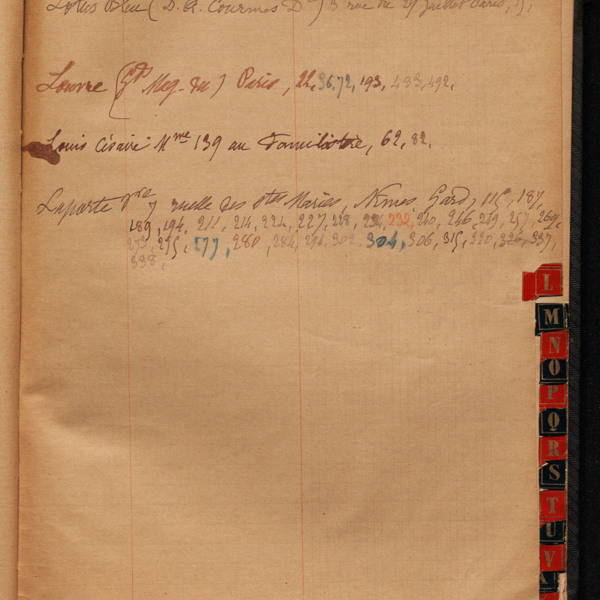 Lotus Bleu (D. A. Courmes Dr) 3 rue du 29 Juillet Paris, 191
Louvre (Gds Mag. du) Paris, 22, 36, 72, 193, 483, 492.
Louis Césaire Mme 139 au Familistère, 62, 82.
Laporte Vve 7 ruelle des Stes Maries, Nîmes, Gard, 115, 187,
189, 194, 211, 214, 224, 227, 228, 232, 240, 246, 249, 257, 269,
273, 275, 277, 280, 284, 294, 302, 304, 306, 315, 320, 326, 337,
338.
L
M
N
O
P
Q
R
S
T
U
V